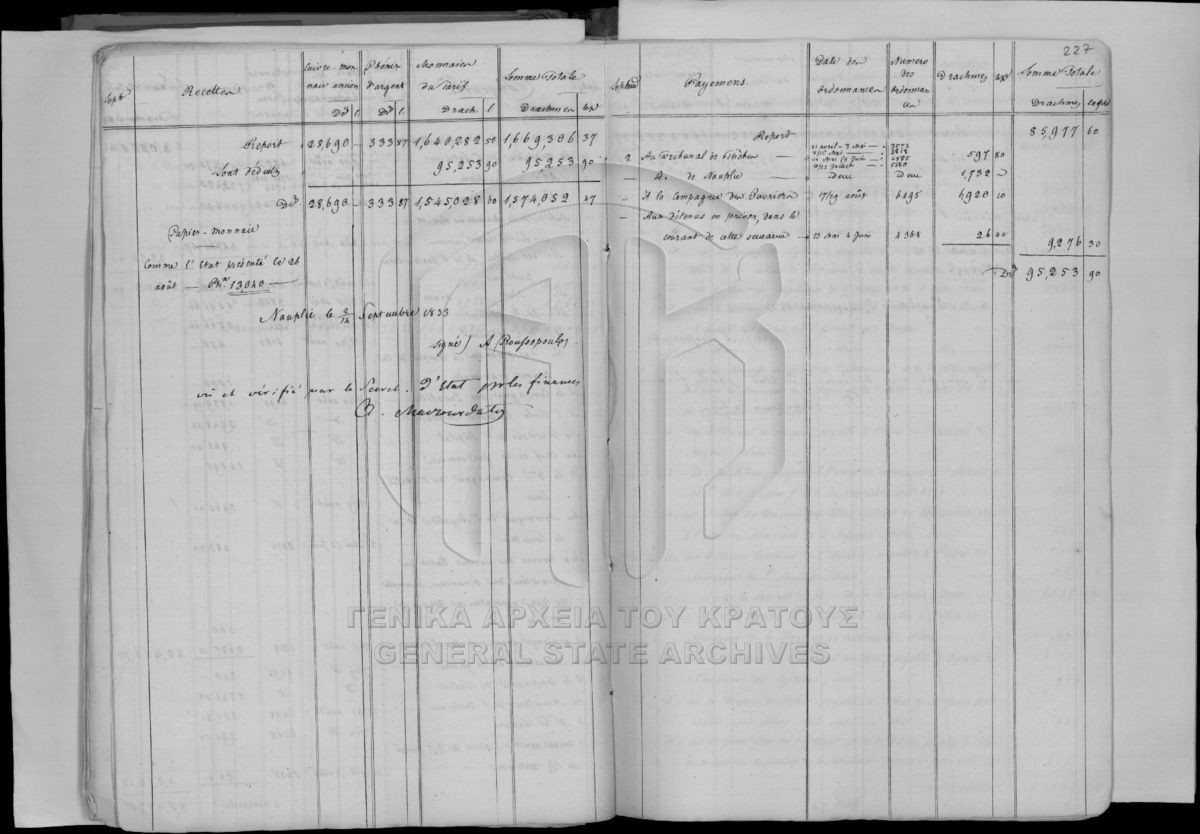 227
Septbre Recettes Cuivre-monnaie ancien Phénix d'argent Monnaies du Tarif Somme Totale
Drs l. Drs l. Drach. l Drachmes lep
Report 28,690 — 333 87 1,640,282 50 1,669,306 37
Sont déduits 95,253 90 95,253 90
Drs 28,690 — 333 87 1,545,028 60 1,574,052 47
Papier-monnaie
Comme l'Etat présenté le 26
août — Phx 13,040 —
Nauplie le 2/14 Septembre 1833
signé)
vu et vérifié par le Secrét. D'Etat pr les finances
Septbre Payemens Date des Ordonnances Numero des Ordonnances Drachmes lep Somme Totale
Drachmes lepta
Report 85,977 60
2 Au Tribunal de 597 80
— A. de Nauplie — Dome Dome 1,732 —
— A la Compagnie des Ouvriers 17/29 août 6495 6920 10
— Aux détenus en prison, dans le
courant de cette semaine — 23 Mai 4 Juin 4368 26 40
9,276 30
Drs 95,253 90
ΓΕΝΙΚΑ ΑΡΧΕΙΑ ΤΟΥ ΚΡΑΤΟΥΣ
GENERAL STATE ARCHIVES